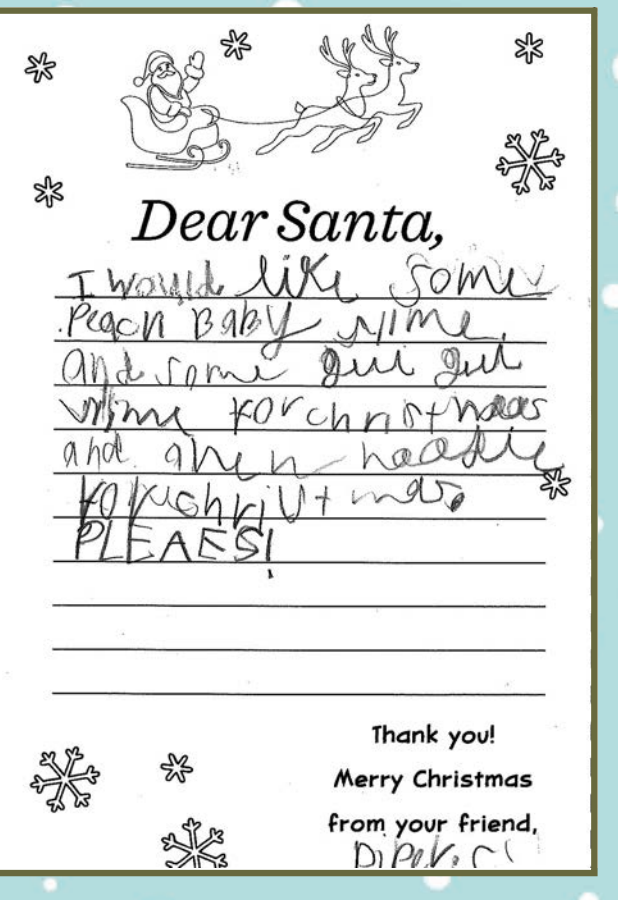 Dear Santa,
I would like some
Peach Baby slime
and some
slime for christmas
and
for christmas
PLEAES!
Thank you!
Merry Christmas
from your friend,